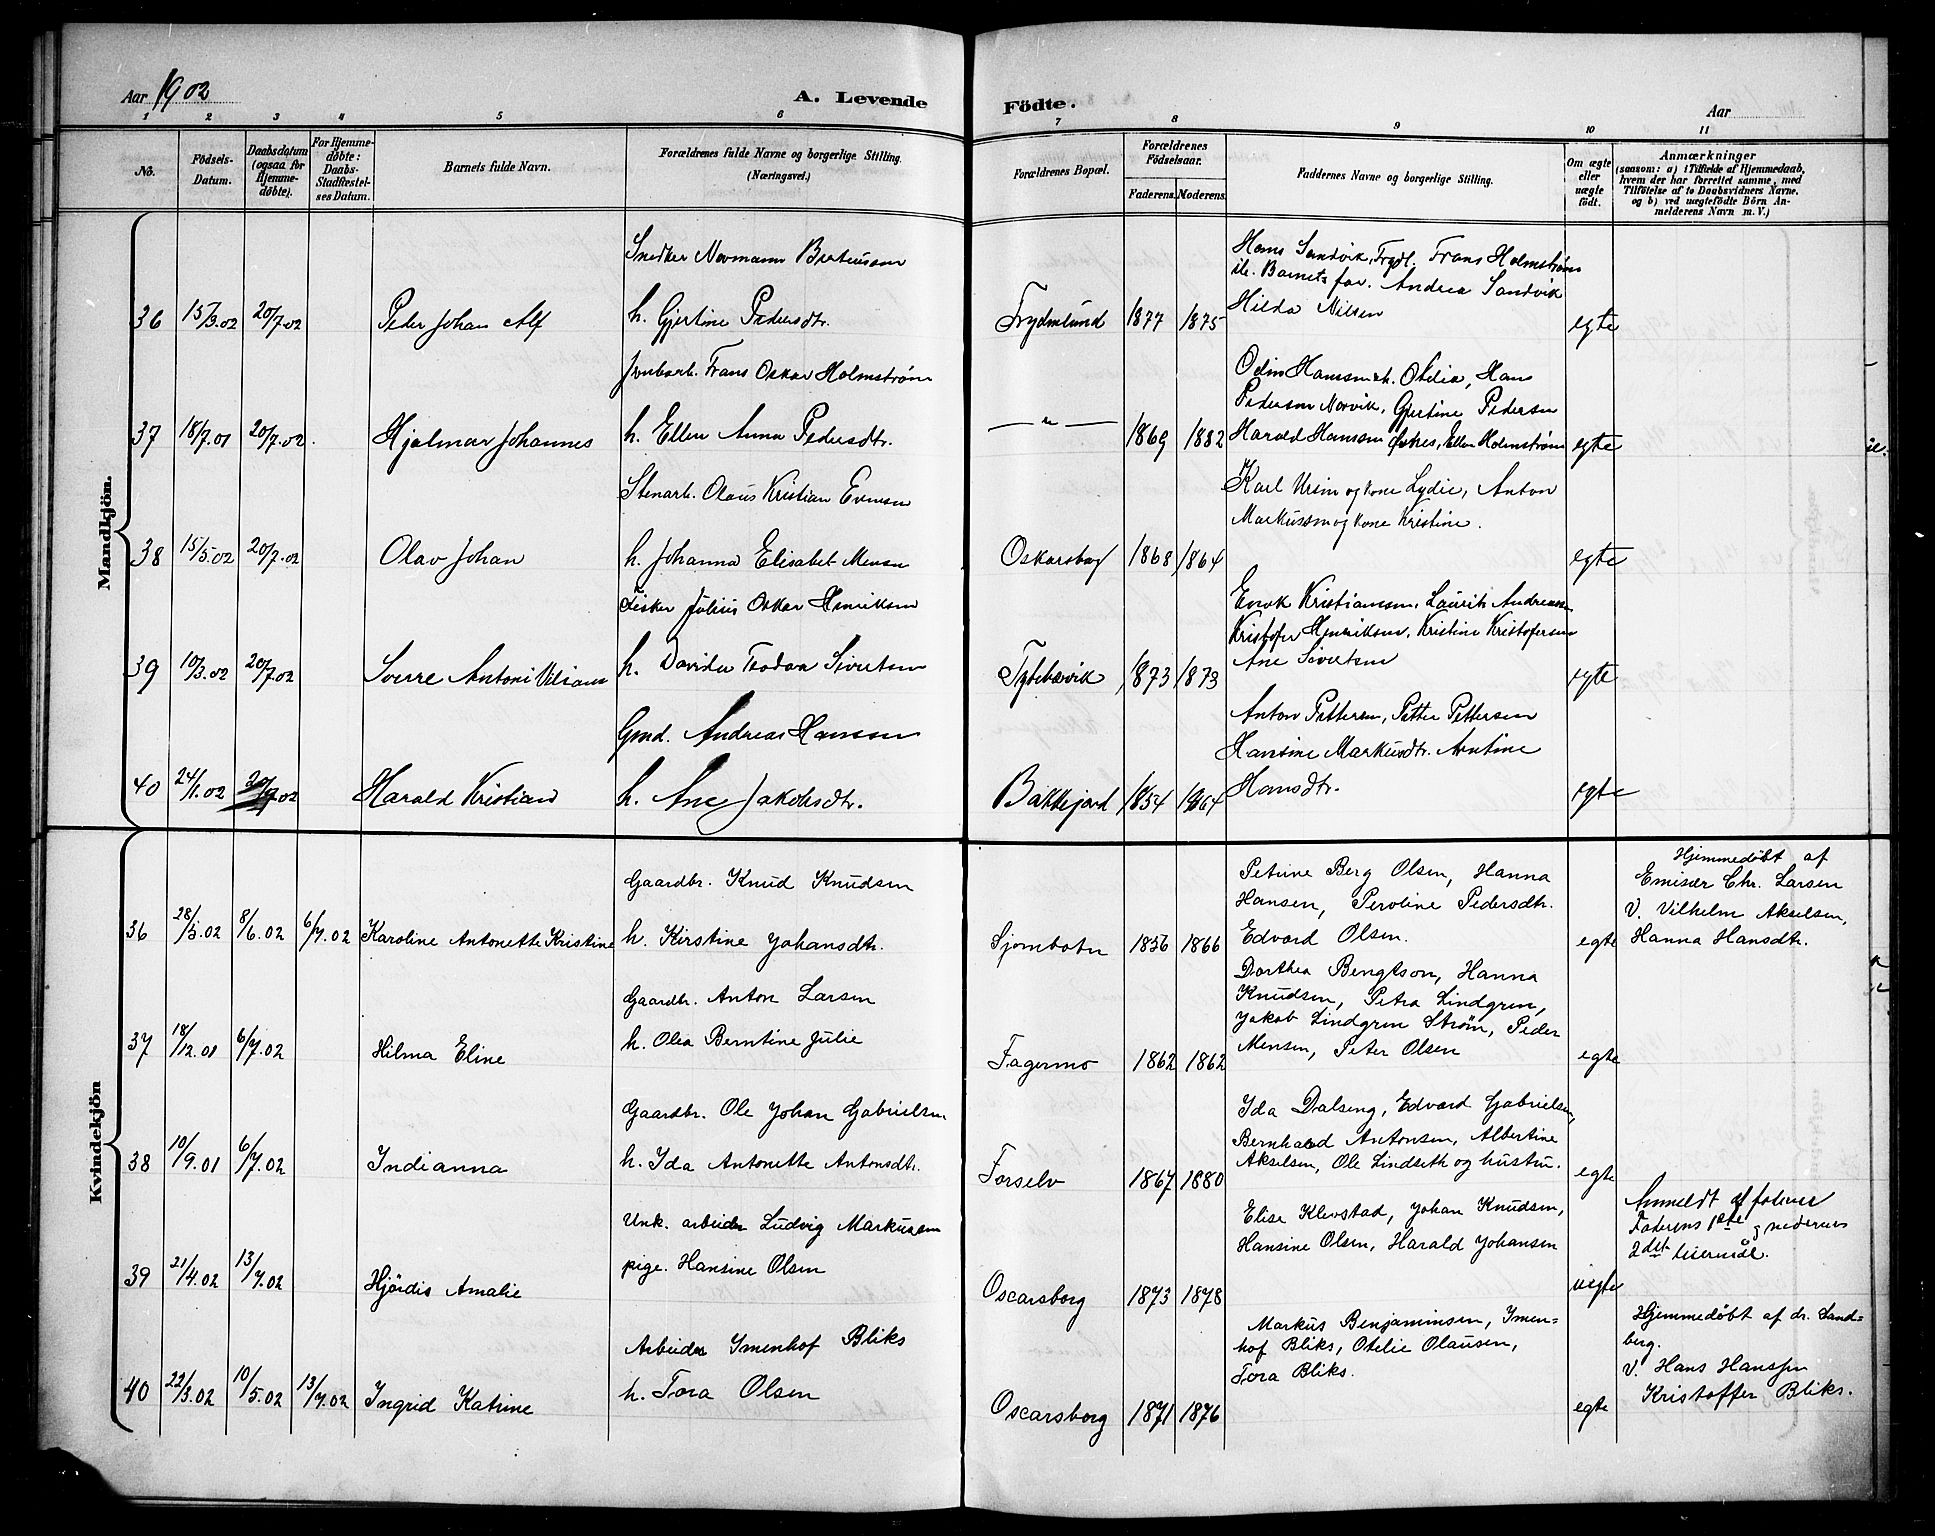 Aar 1902
A. Levende
Födte.
Aar
1 2 3 4 5 6 7 8 9 10 11
No.
Födsels-
Datum.
Daabsdatum
(ogsaa for
Hjemme-
døbte).
For Hjemme-
døbte:
Daabs-
Stadfæstel-
ses Datum.
Barnets fulde Navn.
Forældrenes fulde Navne og borgerlige Stilling.
(Næringsvei.)
Forældrenes Bopæl.
Forældrenes
Fødselsaar.
Faderens. Moderens.
Faddernes Navne og borgerlige Stilling.
Om ægte
eller
uægte
födt.
Anmærkninger
(saasom: a) i Tilfælde af Hjemmedaab,
hvem der har forrettet samme, med
Tilföielse af to Daabsvidners Navne,
og b) ved uægtefödte Börn An-
melderens Navn m. V.)
Mandkjön.
Snedker Normann
36 15/3.02 20/7.02 Peder Johan Alf
h. Gjertine Pedersdtr.
Frydenlund 1877 1875
Hans Sandvik, Frydl. Frans Holmstrøm
ib. Barnets far. Andrea Sandvik
Hilda Nilsen
egte
Jernbarb. Frans Oskar Holmstrøm
37 18/7.01 20/7.02. Hjalmar Johannes
h. Ellen Anna Pedersdtr.
— " — 1869 1882
Odin Hanssen h. Otelia, Hans
Pedersen Norvik, Gjertine Pedersen
Harald Hanssen Ellen Holmstrøm
egte
Stenarb. Olaus Kristian Evensen
38 15/5.02 20/7.02 Olav Johan
h. Johanna Elisabet Mensen
Oskarsborg 1868 1864
Karl Ursin og kone Lydie, Anton
Markussen og kone Kristine.
egte
Fisker Julius Oskar Henriksen
39 10/3.02 20/7.02 Sverre Antoni Viliam
h. Sivertsen
1873 1873
Enok Kristiansen, Laurits Andreassen
Kristofer Henriksen, Kristine Kristofersen
Ane Sivertsen
egte
Gmd. Andreas Hanssen
40 24/1.02 20/7.02 Harald Kristian
h. Ane Jakobsdtr.
Bakkejord 1854 1864
Anton Pettersen, Petter Pettersen
Hansine Markusdtr. Antine
Hansdtr.
egte
Kvindekjön
Gaardbr. Knud Knudsen
36 28/5.02 8/6.02 6/7.02 Karoline Antonette Kristine
h. Kirstine Johansdtr.
Sjombotn 1856 1866
Petrine Berg Olsen, Hanna
Hansen, Peroline Pedersdtr.
Edvard Olsen.
egte
Hjemmedøbt af
Emisær Chr. Larsen
V. Vilhelm Akselsen,
Hanna Hansdtr.
Gaardbr. Anton Larsen
37 18/12.01 6/7.02 Hilma Eline
h. Olea Berntine Julie
Fagermo 1862 1862
Dorthea Bengtson, Hanna
Knudsen, Petra Lindgren,
Jakob Lindgren Strøm, Peder
Mensen, Peter Olsen
egte
Gaardbr. Ole Johan Gabrielsen
38 10/9.01 6/7.02 Indianna
h. Ida Antonette Antonsdtr.
Forselv 1867 1880
Ida Dalseng, Edvard Gabrielsen,
Bernhard Antonsen, Albertine
Akselsen, Ole Lindseth og hustru.
egte
Unk. arbeider Ludvig Markussen
39 21/4.02 13/7.02 Hjördis Amalie
pige. Hansine Olsen
Oscarsborg 1873 1878
Elise Klevstad, Johan Knudsen,
Hansine Olsen, Harald Johansen
uegte
Anmeldt af faderen
Faderens 1ste og moderens
2det leiermål.
Arbeider Imenhof Bliks
40 22/3.02 10/5.02 13/7.02 Ingrid Katrine
h. Tora Olsen
Oscarsborg 1871 1876
Markus Benjaminsen, Imen-
hof Bliks, Otelie Olausen,
Tora Bliks.
egte
Hjemmedøbt af dr. Sand-
berg.
V. Hans Hanssen
Kristoffer Bliks.